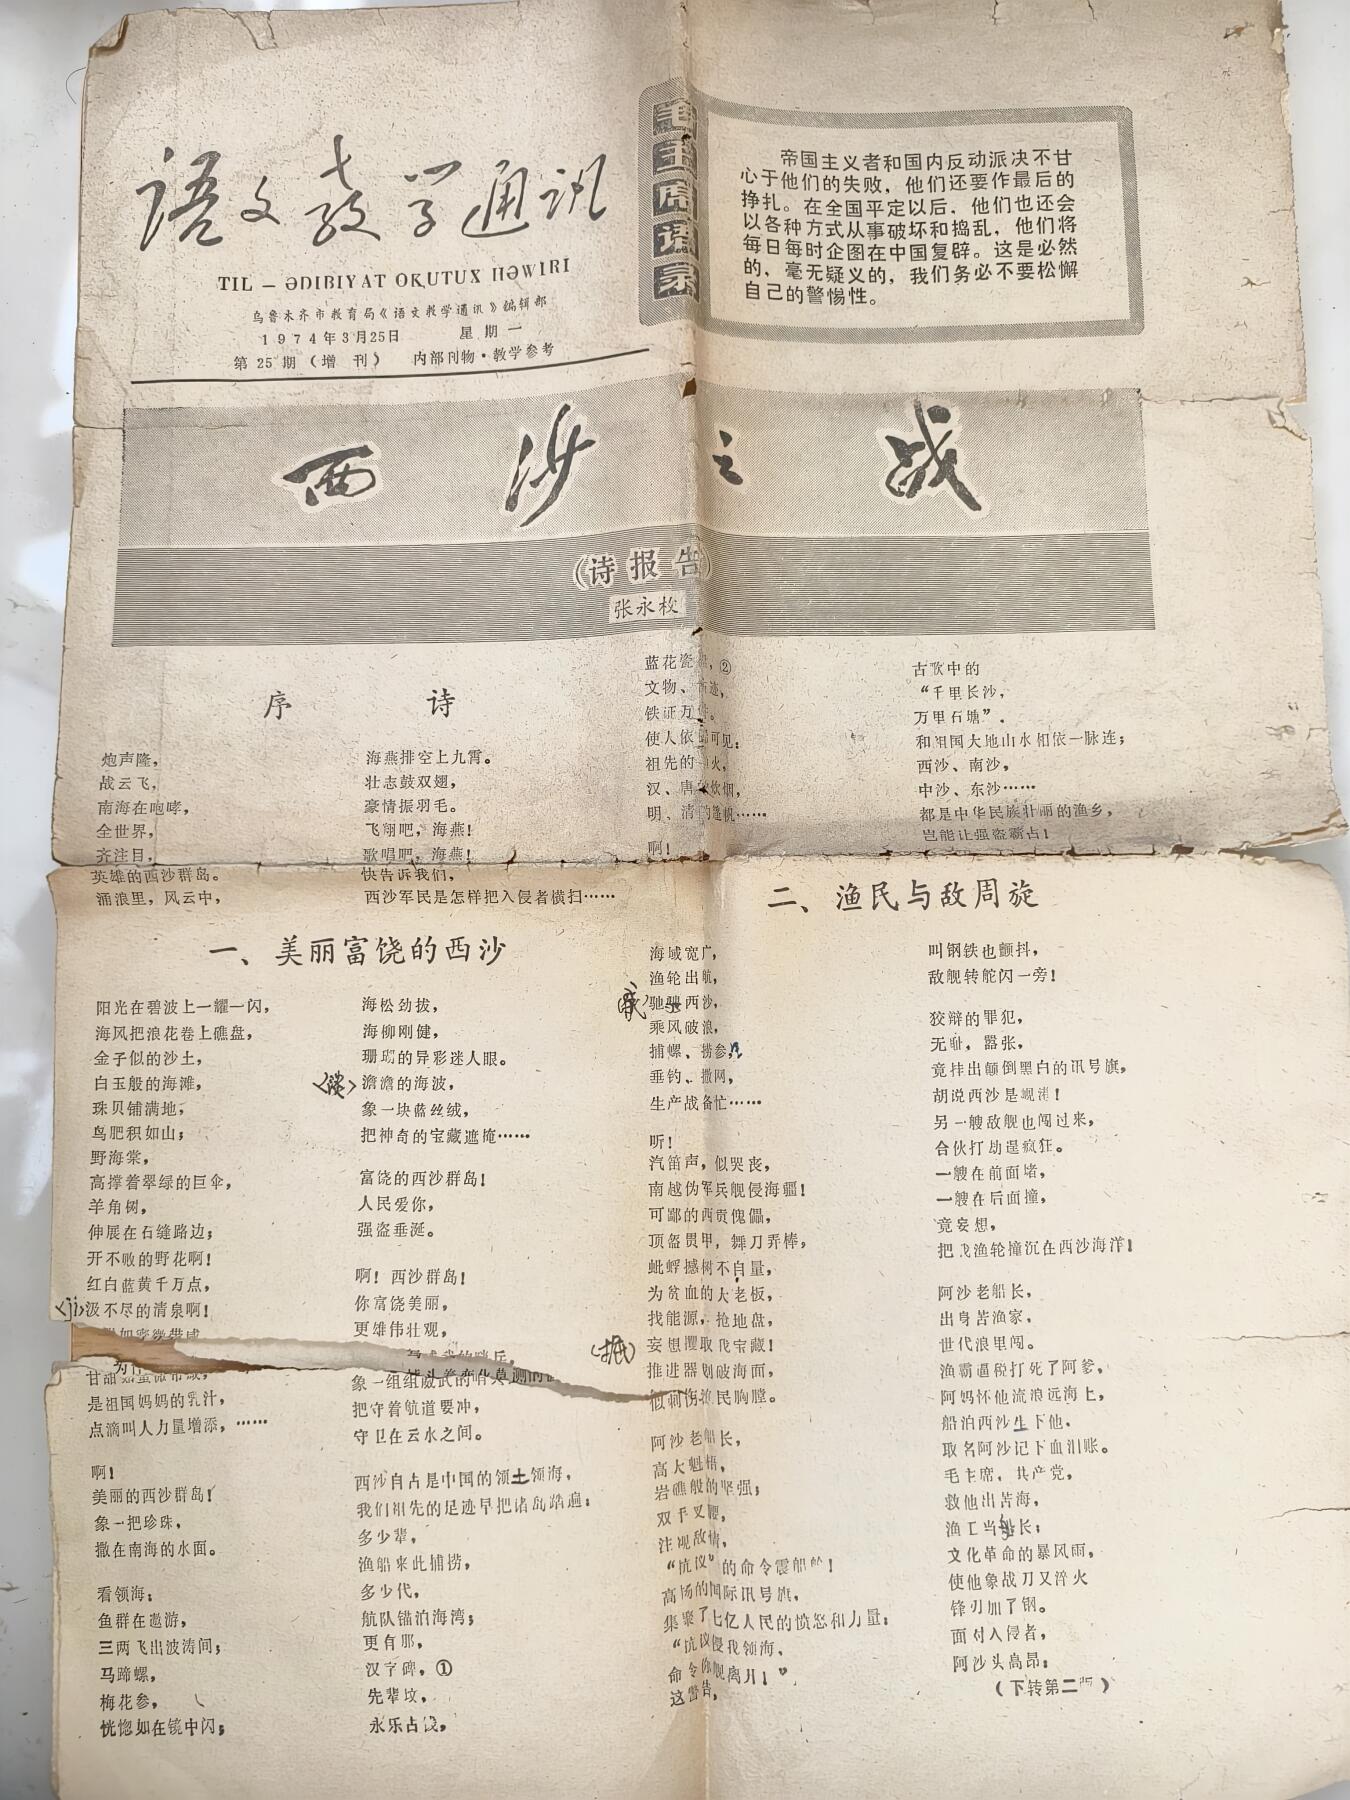 语文教学通讯
TIL — ƏDIBIYAT OKUTUX HƏWIRI
乌鲁木齐市教育局《语文教学通讯》编辑部
1974年3月25日 星期一
第25期（增刊） 内部刊物·教学参考
毛主席语录
帝国主义者和国内反动派决不甘
心于他们的失败，他们还要作最后的
挣扎。在全国平定以后，他们也还会
以各种方式从事破坏和捣乱，他们将
每日每时企图在中国复辟。这是必然
的、毫无疑义的，我们务必不要松懈
自己的警惕性。
西沙之战
（诗报告）
张永枚
序诗
炮声隆，
战云飞，
南海在咆哮，
全世界，
齐注目，
英雄的西沙群岛。
涌浪里，风云中，
海燕排空上九霄。
壮志鼓双翅，
豪情振羽毛。
飞翔吧，海燕！
歌唱吧，海燕！
快告诉我们，
西沙军民是怎样把入侵者横扫……
一、美丽富饶的西沙
阳光在碧波上一耀一闪，
海风把浪花卷上礁盘，
金子似的沙土，
白玉般的海滩，
珠贝铺满地，
鸟肥积如山；
野海棠，
高撑着翠绿的巨伞，
羊角树，
伸展在石缝路边；
开不败的野花啊！
红白蓝黄千万点，
〈jí〉汲不尽的清泉啊！
甘甜如蜜微带咸，
是祖国妈妈的乳汁，
点滴叫人力量增添，……
啊！
美丽的西沙群岛！
象一把珍珠，
撒在南海的水面。
看领海：
鱼群在遨游，
三两飞出波涛间；
马蹄螺，
梅花参，
恍惚如在镜中闪；
海松劲拔，
海柳刚健，
珊瑚的异彩迷人眼。
澹澹的海波，
象一块蓝丝绒，
把神奇的宝藏遮掩……
富饶的西沙群岛！
人民爱你，
强盗垂涎。
啊！西沙群岛！
你富饶美丽，
更雄伟壮观，
象一组组威武的哨兵，
把守着航道要冲，
守卫在云水之间。
西沙自古是中国的领土领海，
我们祖先的足迹早把诸岛踏遍：
多少辈，
渔船来此捕捞，
多少代，
航队锚泊海湾；
更有那，
汉字碑，①
先辈坟，
永乐古钱，
蓝花瓷，②
文物、古迹，
铁证万件。
使人依稀可见：
祖先的渔火，
汉、唐的炊烟，
明、清的篷帆……
啊！
古歌中的
“千里长沙，
万里石塘”．
和祖国大地山水相依一脉连；
西沙、南沙，
中沙、东沙……
都是中华民族壮丽的渔乡，
岂能让强盗霸占！
二、渔民与敌周旋
海域宽广，
渔轮出航，
驰骋西沙，
乘风破浪，
捕螺、捞参，
垂钓、撒网，
生产战备忙……
听！
汽笛声，似哭丧，
南越伪军兵舰侵海疆！
可鄙的西贡傀儡，
顶盔贯甲，舞刀弄棒，
蚍蜉撼树不自量，
为贫血的大老板，
找能源，抢地盘，
妄想攫取我宝藏！
推进器划破海面，
似刺伤渔民胸膛。
阿沙老船长，
高大魁梧，
岩礁般的坚强；
双手叉腰，
注视敌情，
“抗议”的命令震船舱！
高扬的国际讯号旗，
集聚了七亿人民的愤怒和力量：
“抗议侵我领海，
命令你舰离开！”
这警告，
叫钢铁也颤抖，
敌舰转舵闪一旁！
狡辩的罪犯，
无耻，嚣张，
竟挂出颠倒黑白的讯号旗，
胡说西沙是岘港！
另一艘敌舰也闯过来，
合伙打劫逞疯狂。
一艘在前面堵，
一艘在后面撞，
竟妄想，
把我渔轮撞沉在西沙海洋！
阿沙老船长，
出身苦渔家，
世代浪里闯。
渔霸逼税打死了阿爹，
阿妈怀他流浪远海上，
船泊西沙生下他，
取名阿沙记下血泪账。
毛主席，共产党，
救他出苦海，
渔工当船长；
文化革命的暴风雨，
使他象战刀又淬火
锋刃加了钢。
面对入侵者，
阿沙头高昂：
（下转第二版）